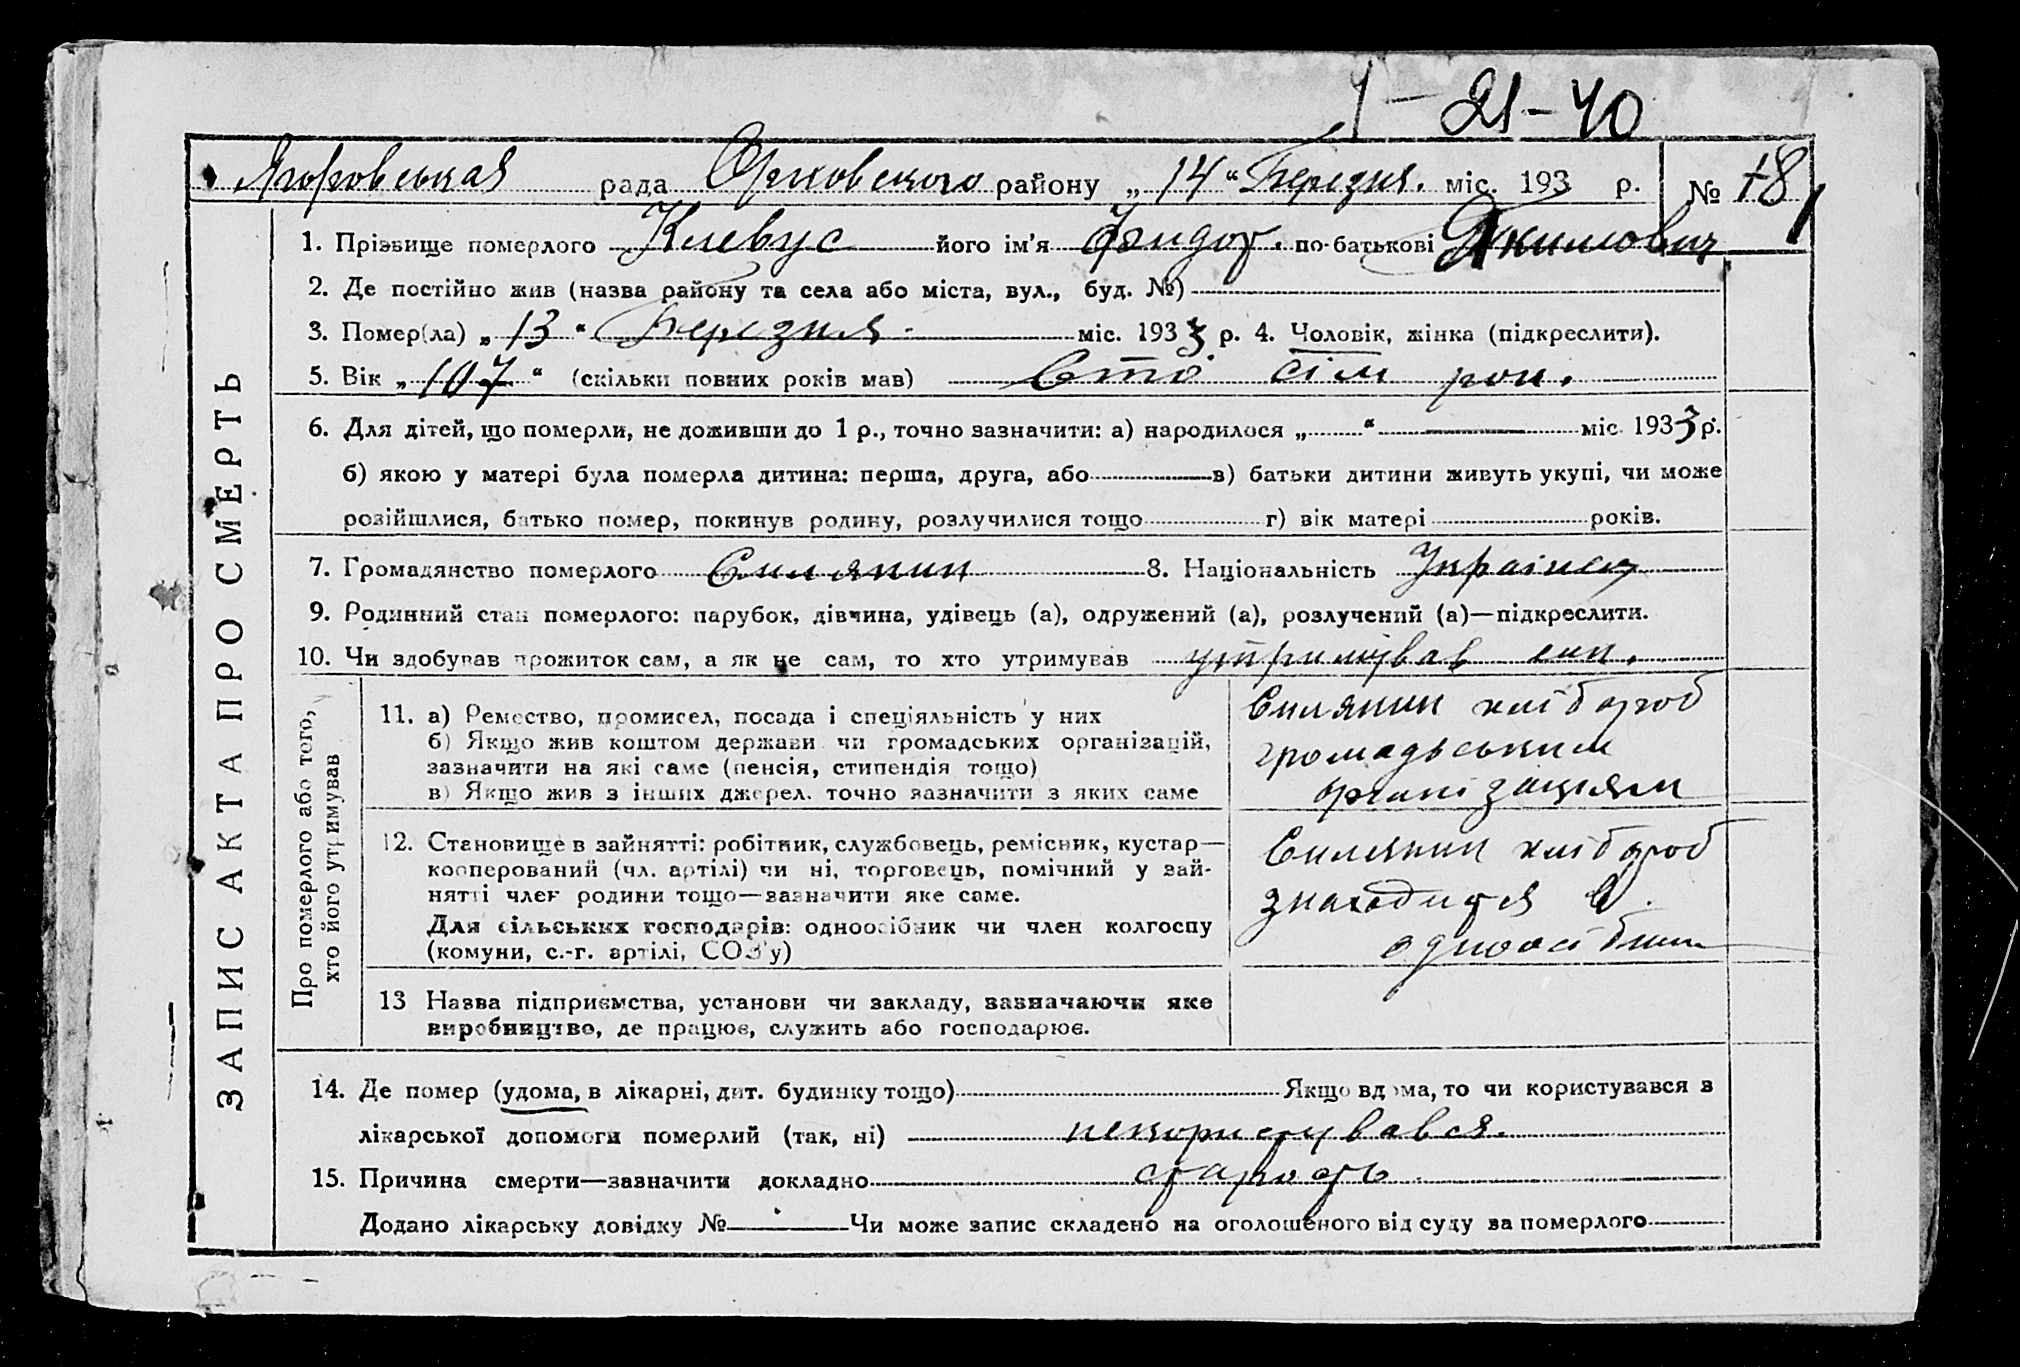 21-40
Ягоровськая рада району „14“ Березня. міс. 193 р. № 78
1. Прізвище померлого Клевус його ім'я Фидот. по-батькові Якимович
2. Де постійно жив (назва району та села або міста, вул., буд. №)
3. Помер(ла) „13“ Березня міс. 1933 р. 4. Чоловік, жінка (підкреслити).
5. Вік „107“ (скільки повних років мав) Сто сім рок.
6. Для дітей, що померли, не доживши до 1 р., точно зазначити: а) народилося „ “ міс. 1933 р.
б) якою у матері була померла дитина: перша, друга, або в) батьки дитини живуть укупі, чи може
розійшлися, батько помер, покинув родину, розлучилися тощо г) вік матері років.
7. Громадянство померлого Силянин 8. Національність Українец
9. Родинний стан померлого: парубок, дівчина, удівець (а), одружений (а), розлучений (а)—підкреслити.
10. Чи здобував прожиток сам, а як не сам, то хто утримував утримував син.
ЗАПИС АКТА ПРО СМЕРТЬ
Про померлого або того,
хто його утримував
11. а) Ремество, промисел, посада і спеціяльність у них
б) Якщо жив коштом держави чи громадських організацій,
зазначити на які саме (пенсія, стипендія тощо)
в) Якщо жив з інших джерел. точно зазначити з яких саме
Силянин хлібороб
громадьським
організаціям
12. Становище в зайнятті: робітник, службовець, ремісник, кустар—
кооперований (чл. артілі) чи ні, торговець, помічний у зай-
нятті член родини тощо—зазначити яке саме.
Для сільських господарів: одноосібник чи член колгоспу
(комуни, с.-г. артілі, СОЗ'у)
Силянин хлібороб
знаходится в
одноосібник
13 Назва підприємства, установи чи закладу, зазначаючи яке
виробництво, де працює, служить або господарює.
14. Де помер (удома, в лікарні, дит. будинку тощо) Якщо вдома, то чи користувався з
лікарської допомоги померлий (так, ні) некористувався.
15. Причина смерти—зазначити докладно старость
Додано лікарську довідку № Чи може запис складено на оголошеного від суду за померлого